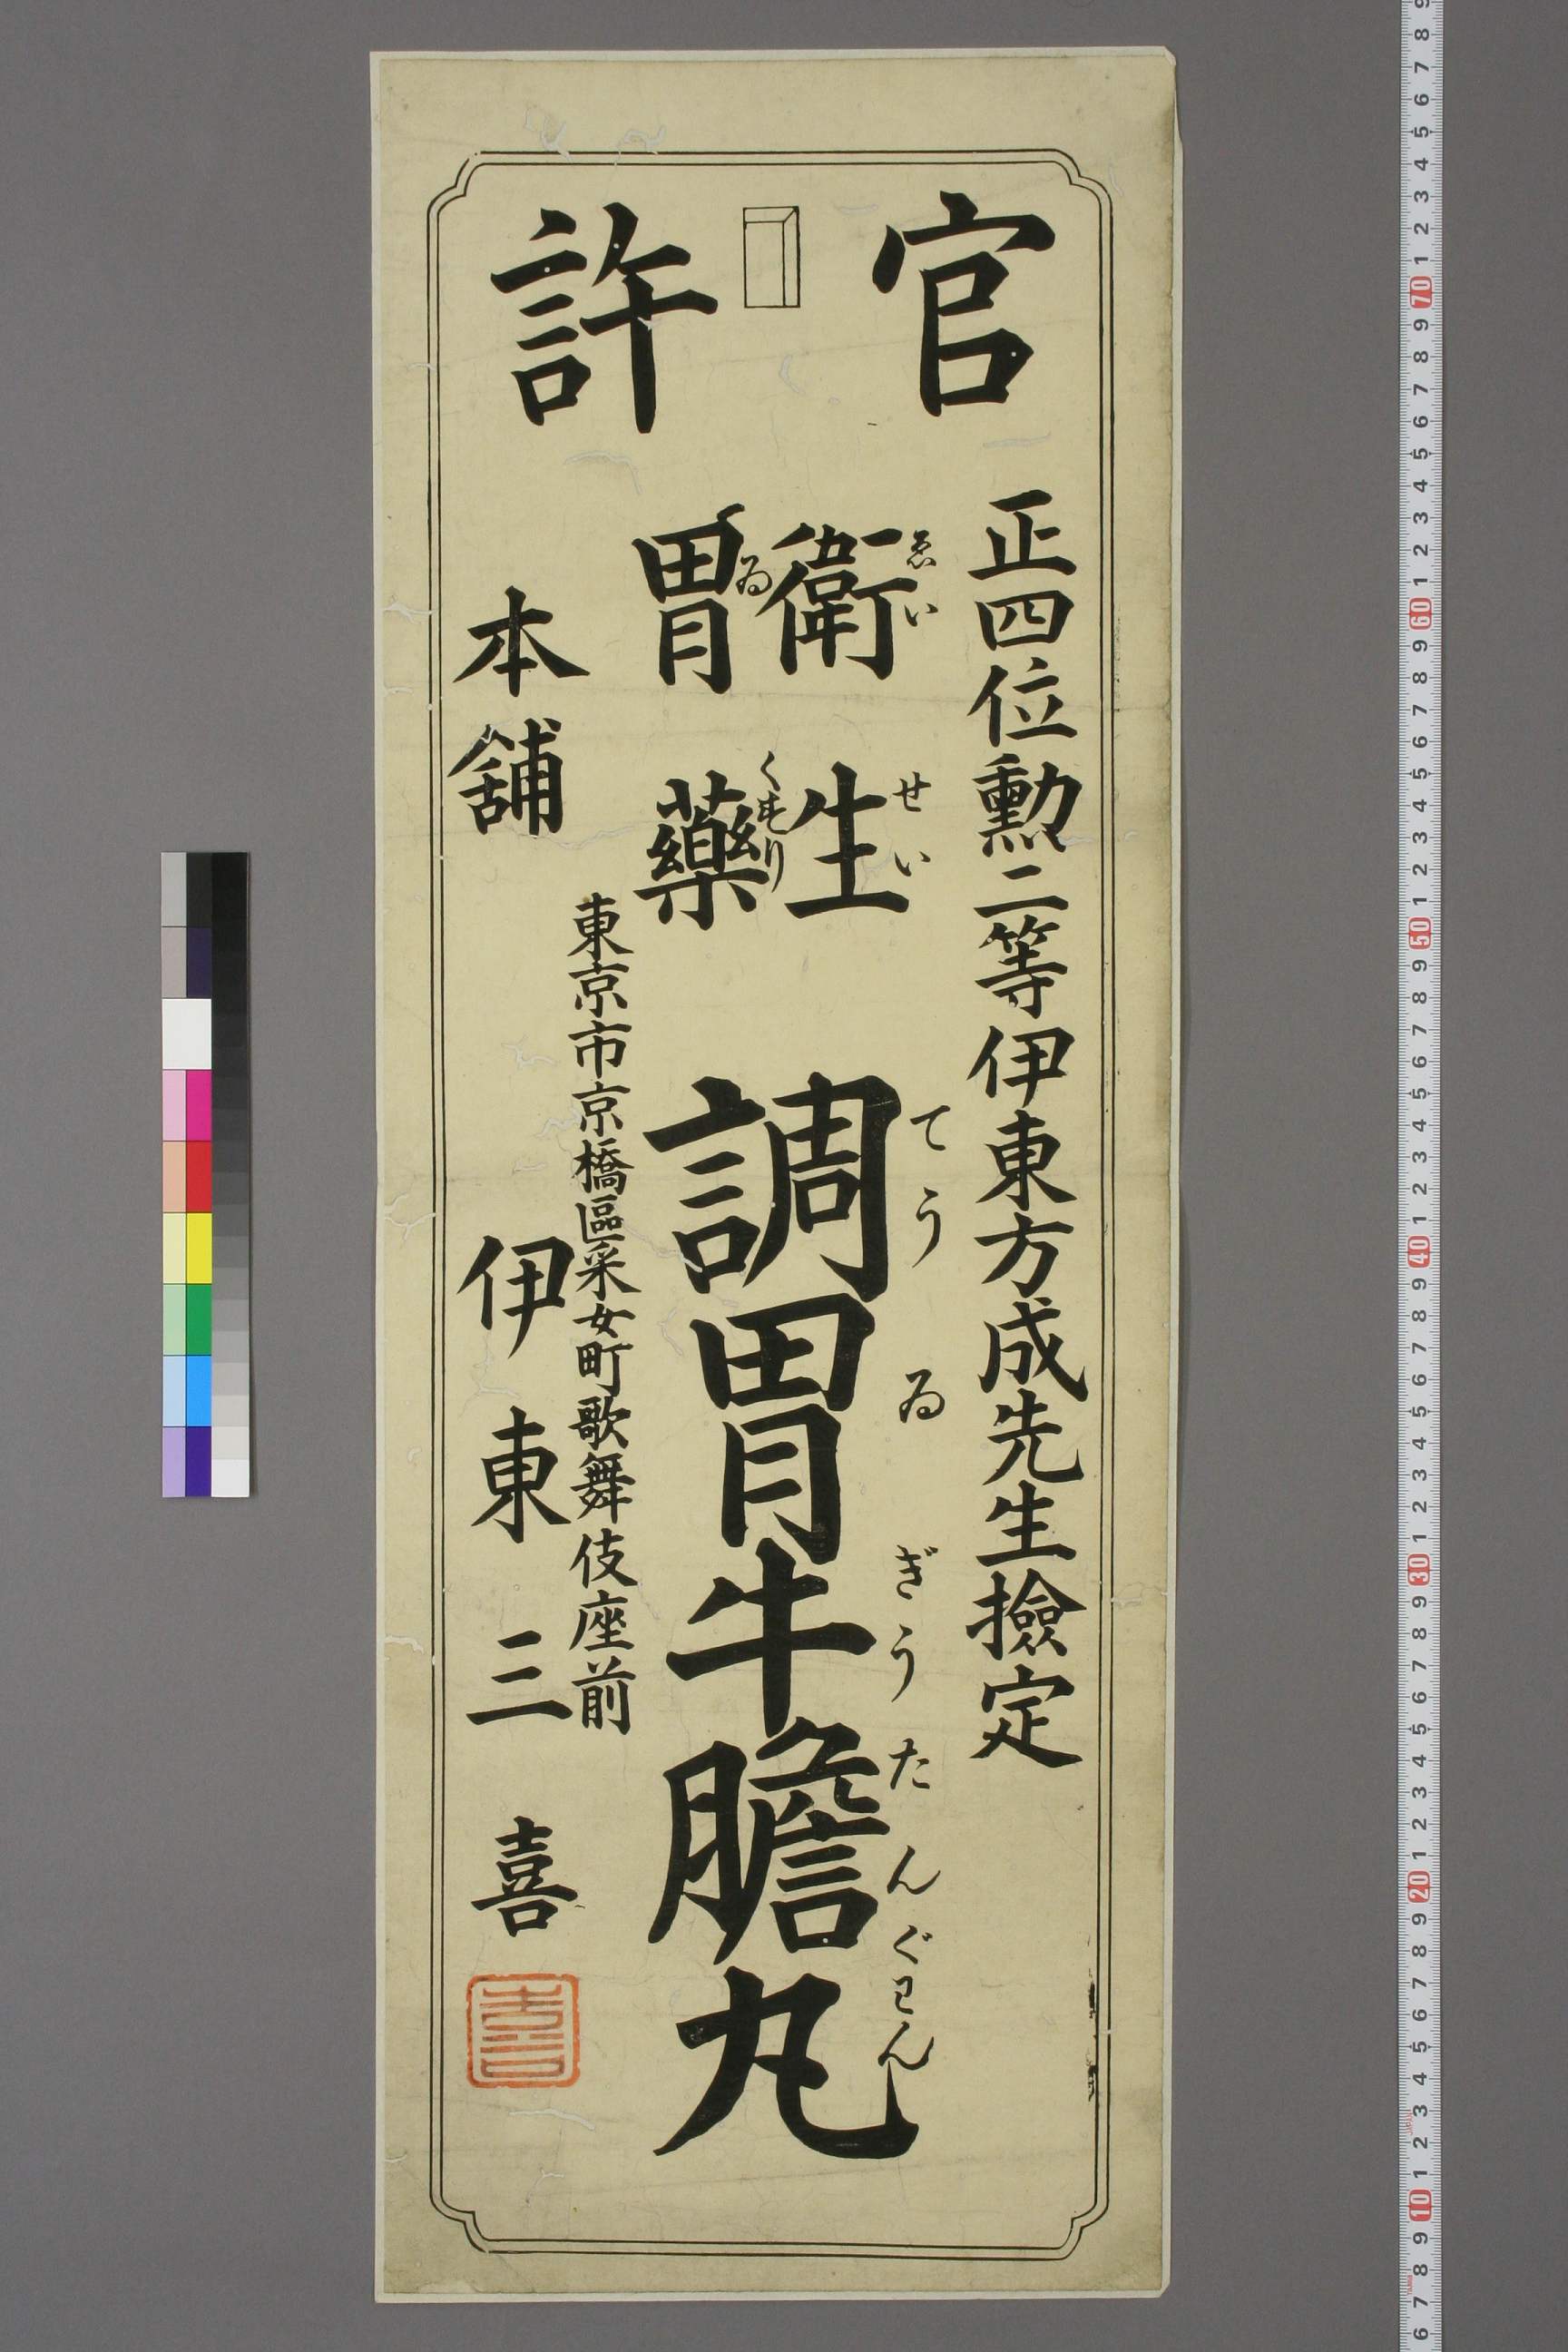 官許
正四位勲二等伊東方成先生撿定
ゑいせい
衛生
ゐくすり
胃藥
てうゐぎうたんぐわん
調胃牛膽丸
東京市京橋區采女町歌舞伎座前
本舖 伊東三喜